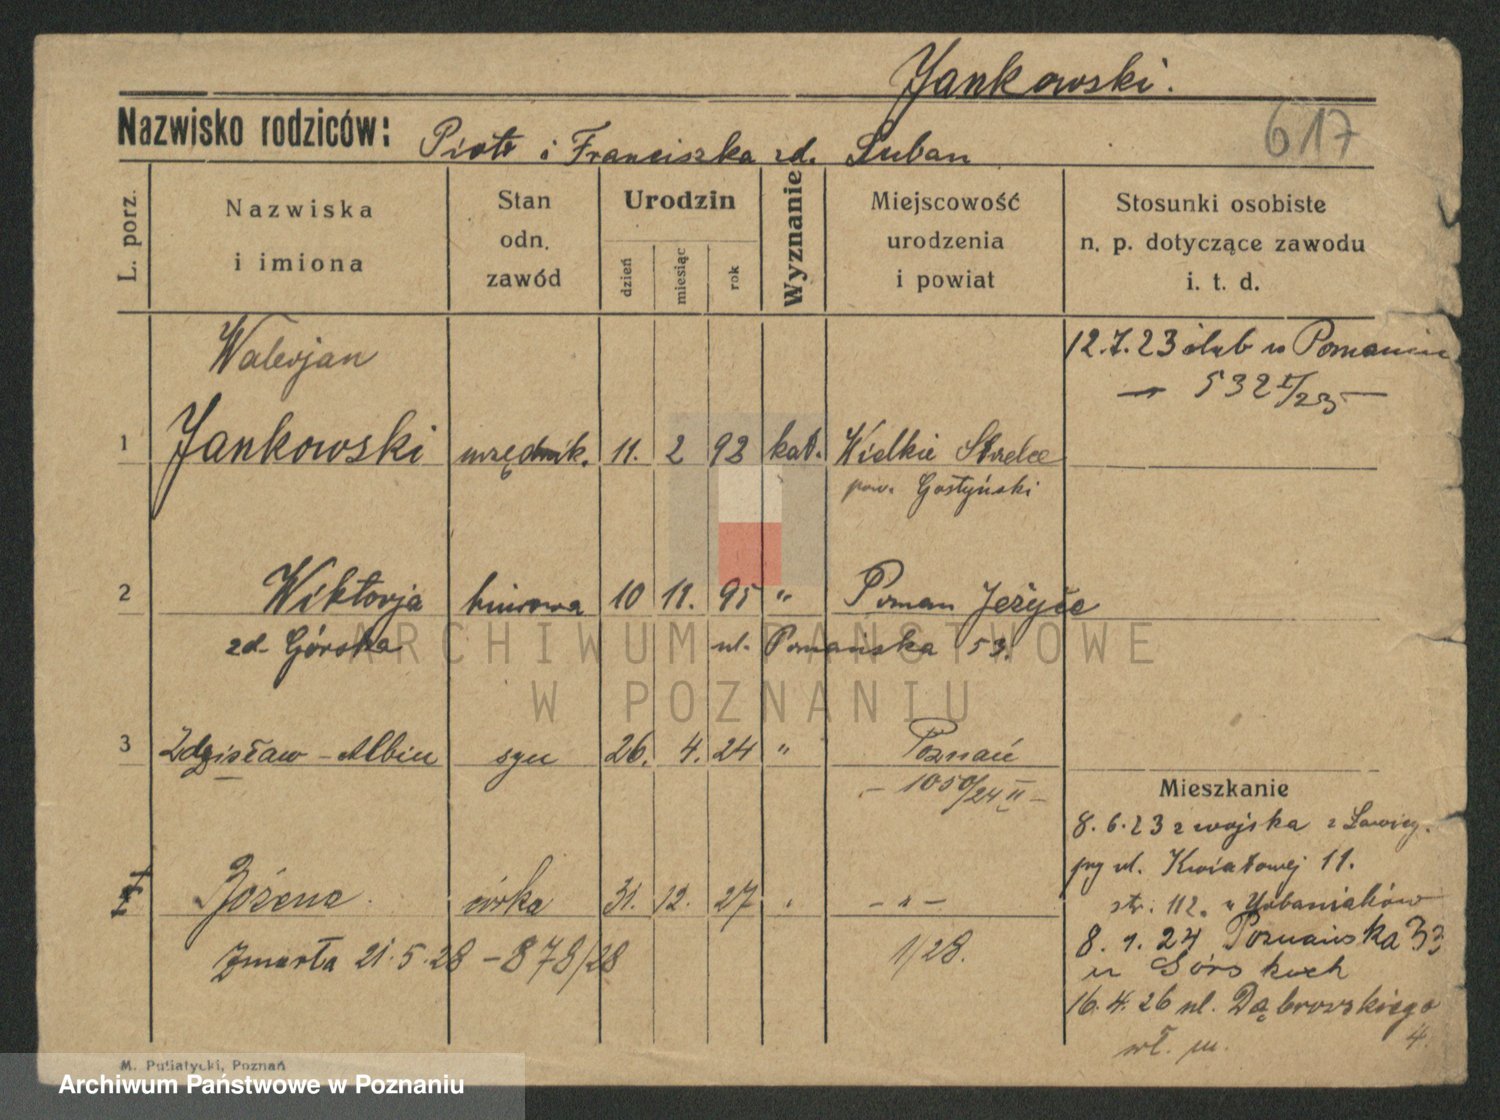 Jankowski.
617
Nazwisko rodziców: Piotr i Franciszka zd. Luban
L. porz.
Nazwiska
i imiona
Stan
odn.
zawód
Urodzin
dzień
miesiąc
rok
Wyznanie
Miejscowość
urodzenia
i powiat
Stosunki osobiste
n. p. dotyczące zawodu
i. t. d.
Walerjan
12.7.23 ślub w Poznaniu
532 I/23
1 Jankowski urzędnik. 11. 2 92 kat. Wielkie Strzelce
pow. Gostyński
2 Wiktorja biurowa 10 11. 95 " Poznań Jeżyce
zd. Górska ul. Poznańska 53.
3 Zdzisław-Albin syn 26. 4. 24 " Poznań
- 1050/24 II -
Mieszkanie
8.6.23 z wojska z Ławicy.
przy ul. Kwiatowej 11.
str. 112. u Urbaniaków
Bożena córka 31. 12. 27 " - " -
Zmarła 21.5.28 - 878/28 1/28.
8.1.24 Poznańska 33
u Górskich
16.4.26 ul. Dąbrowskiego
4.
wł. m.
M. Putiatycki, Poznań
ARCHIWUM PAŃSTWOWE
W POZNANIU
Archiwum Państwowe w Poznaniu